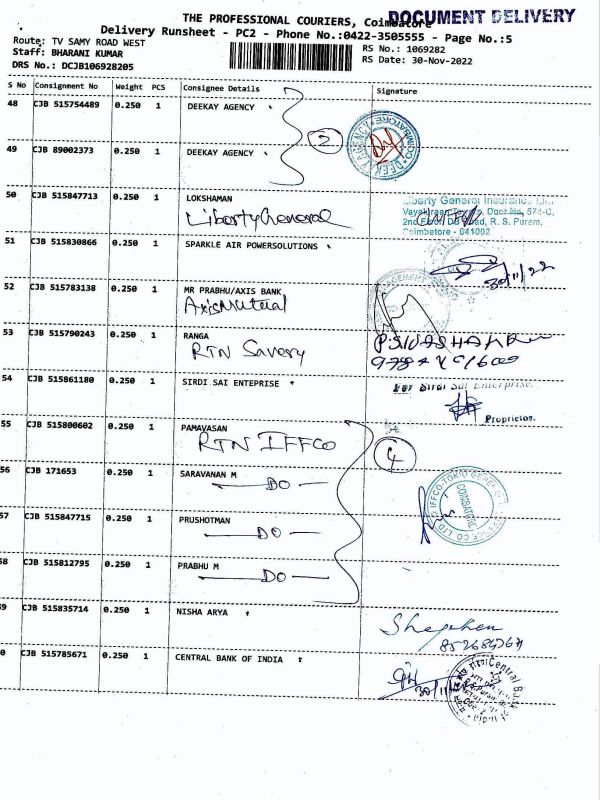 THE PROFESSIONAL COURIERS, Coimbatore
DOCUMENT DELIVERY
Delivery Runsheet - PC2 - Phone No.:0422-3505555 - Page No.:5
Route: TV SAMY ROAD WEST
Staff: BHARANI KUMAR
DRS No.: DCJB106928205
RS No.: 1069282
RS Date: 30-Nov-2022
S No Consignment No Weight PCS Consignee Details Signature
48 CJB 515754489 0.250 1 DEEKAY AGENCY
2
49 CJB 89002373 0.250 1 DEEKAY AGENCY
50 CJB 515847713 0.250 1 LOKSHAMAN
Liberty General
Liberty General Insurance
2nd Floor, R. S. Puram,
Coimbatore - 041002
51 CJB 515830866 0.250 1 SPARKLE AIR POWERSOLUTIONS
30/11/22
52 CJB 515783138 0.250 1 MR PRABHU/AXIS BANK
Axis Mutual
53 CJB 515790243 0.250 1 RANGA
RTN Savery
54 CJB 515861180 0.250 1 SIRDI SAI ENTEPRISE
For Sirdi Sai Enterprise.
Proprietor.
55 CJB 515800602 0.250 1 PAMAVASAN
RTN IFFCO
4
56 CJB 171653 0.250 1 SARAVANAN M
DO
57 CJB 515847715 0.250 1 PRUSHOTMAN
DO
58 CJB 515812795 0.250 1 PRABHU M
DO
59 CJB 515835714 0.250 1 NISHA ARYA
Stephen
0 CJB 515785671 0.250 1 CENTRAL BANK OF INDIA
30/11